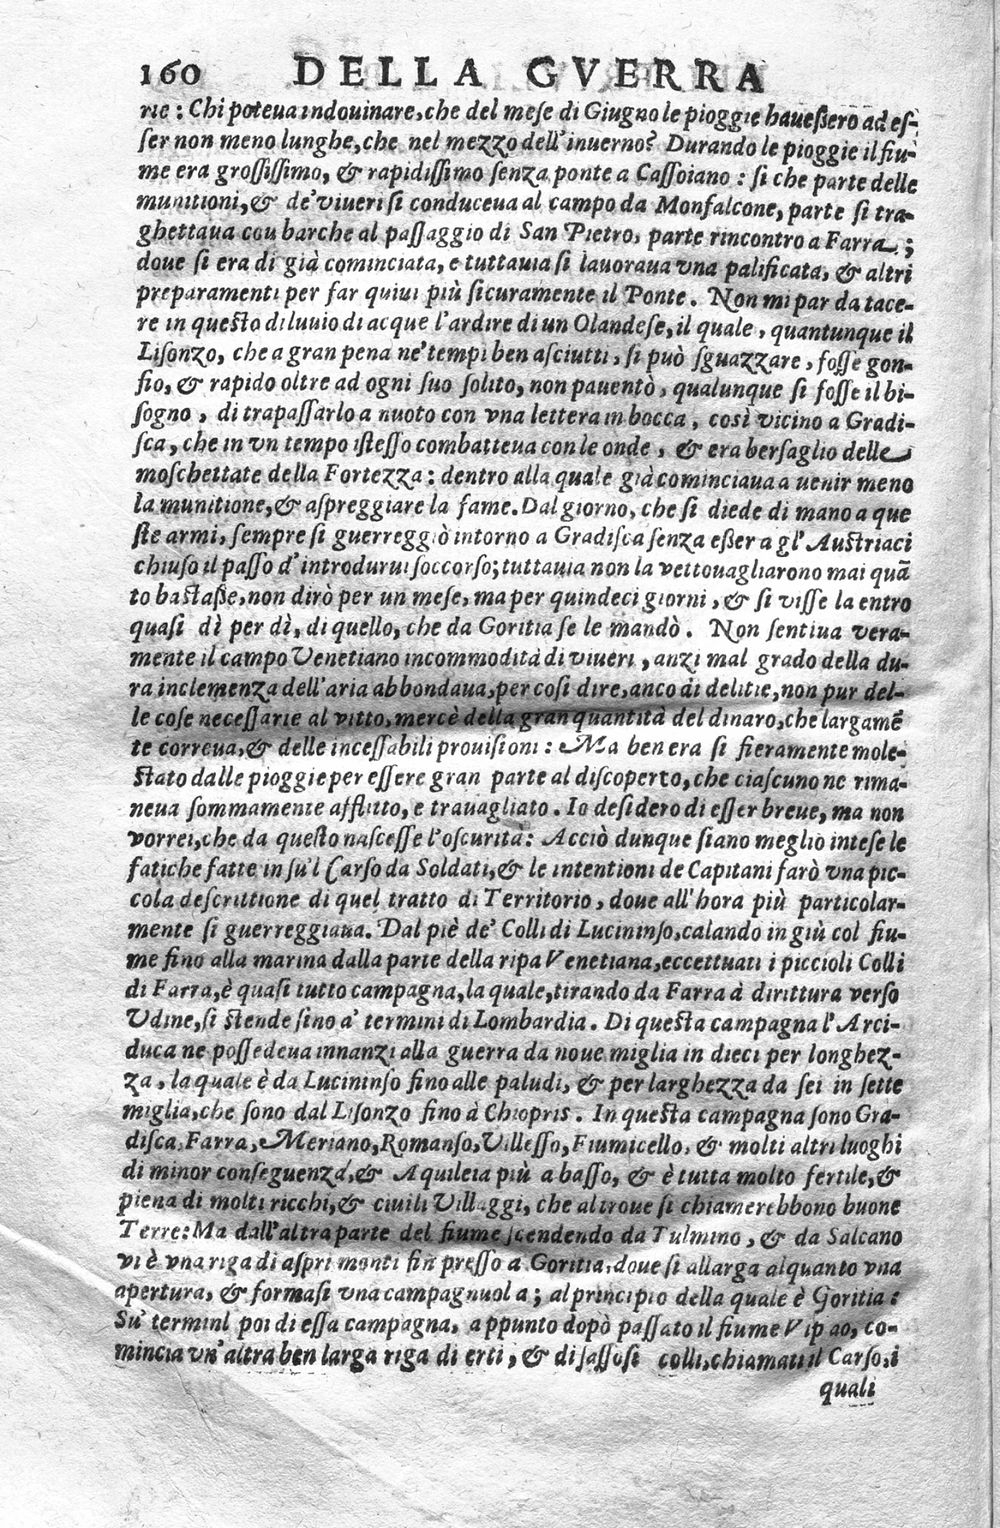 160 DELLA GVERRA
rie : Chi poteua indouinare, che del mese di Giugno le pioggie haueßero ad es-
ser non meno lunghe, che nel mezzo dell'inuerno? Durando le pioggie il fiu-
me era grossissimo, & rapidissimo senza ponte a Cassoiano : si che parte delle
munitioni, & de' viueri si conduceua al campo da Monfalcone, parte si tra-
ghettaua cou barche al passaggio di San Pietro, parte rincontro a Farra ;
doue si era di già cominciata, e tuttauia si lauoraua vna palificata, & altri
preparamenti per far quiui più sicuramente il Ponte. Non mi par da tace-
re in questo diluuio di acque l'ardire di un Olandese, il quale, quantunque il
Lisonzo, che a gran pena ne' tempi ben asciutti, si può sguazzare, fosse gon-
fio, & rapido oltre ad ogni suo solito, non pauentò, qualunque si fosse il bi-
sogno, di trapassarlo a nuoto con vna lettera in bocca, così vicino a Gradi-
sca, che in vn tempo istesso combatteua con le onde, & era bersaglio delle
moschettate della Fortezza : dentro alla quale già cominciaua a uenir meno
la munitione, & aspreggiare la fame. Dal giorno, che si diede di mano a que
ste armi, sempre si guerreggiò intorno a Gradisca senza eßer a gl'Austriaci
chiuso il passo d'introdurui soccorso; tuttauia non la vettouagliarono mai quā
to bastaße, non dirò per un mese, ma per quindeci giorni, & si visse la entro
quasi dì per dì, di quello, che da Goritia se le mandò. Non sentiua vera-
mente il campo Venetiano incommodità di viueri, anzi mal grado della du-
ra inclemenza dell'aria abbondaua, per così dire, anco di delitie, non pur del-
le cose necessarie al vitto, mercè della gran quantità del dinaro, che largamē
te correua, & delle incessabili prouisioni : Ma ben era si fieramente mole-
stato dalle pioggie per essere gran parte al discoperto, che ciascuno ne rima-
neua sommamente afflitto, e trauagliato. Io desidero di esser breue, ma non
vorrei, che da questo nascesse l'oscurità : Acciò dunque siano meglio intese le
fatiche fatte in su'l Carso da Soldati, & le intentioni de Capitani farò vna pic-
cola descrittione di quel tratto di Territorio, doue all'hora più particolar-
mente si guerreggiaua. Dal piè de' Colli di Lucininso, calando in giù col fiu-
me fino alla marina dalla parte della ripa Venetiana, eccettuati i piccioli Colli
di Farra, è quasi tutto campagna, la quale, tirando da Farra à dirittura verso
Vdine, si stende sino a' termini di Lombardia. Di questa campagna l'Arci-
duca ne possedeua innanzi alla guerra da noue miglia in dieci per longhez-
za, la quale è da Lucininso fino alle paludi, & per larghezza da sei in sette
miglia, che sono dal Lisonzo fino à Chiopris. In questa campagna sono Gra-
disca, Farra, Meriano, Romanso, Villesso, Fiumicello, & molti altri luoghi
di minor conseguenza, & Aquileia più a basso, & è tutta molto fertile, &
piena di molti ricchi, & ciuili Villaggi, che altroue si chiamerebbono buone
Terre : Ma dall'altra parte del fiume scendendo da Tulmino, & da Salcano
vi è vna riga di aspri monti fin presso a Goritia, doue si allarga alquanto vna
apertura, & formasi vna campagnuola; al principio della quale è Goritia :
Su' termini poi di essa campagna, appunto dopò passato il fiume Vipao, co-
mincia vn'altra ben larga riga di erti, & di sassosi colli, chiamati il Carso, i
quali